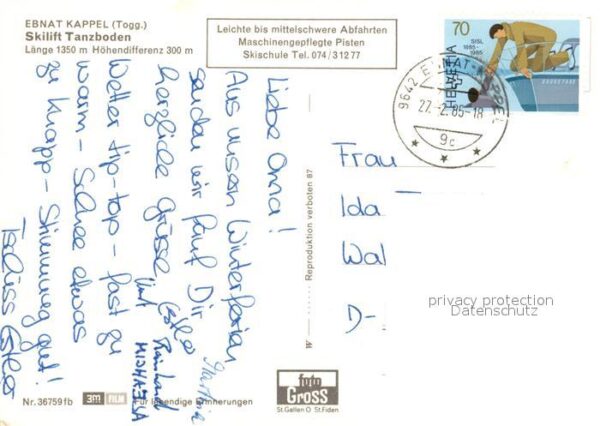 EBNAT KAPPEL (Togg.)
Skilift Tanzboden
Länge 1350 m Höhendifferenz 300 m
Leichte bis mittelschwere Abfahrten
Maschinengepflegte Pisten
Skischule Tel. 074/31277
Liebe Oma!
Aus unsern Winterferien
senden wir fünf Dir
herzliche Grüsse.
Wetter tip-top – fast zu
warm – Schnee etwas
zu knapp – Stimmung gut!
Tschüss Esther
Esther
Reinhard
MICHAELA
Nr. 36759fb
3M FILM
Für lebendige Erinnerungen
W
Reproduktion verboten 87
foto
GROSS
St.Gallen O St.Fiden
70
SISL
1885-1985
HELVETIA
9642 EBNAT-KAPPEL
27.-2.85-18
9c
Frau
Ida
Wal
D-
privacy protection
Datenschutz